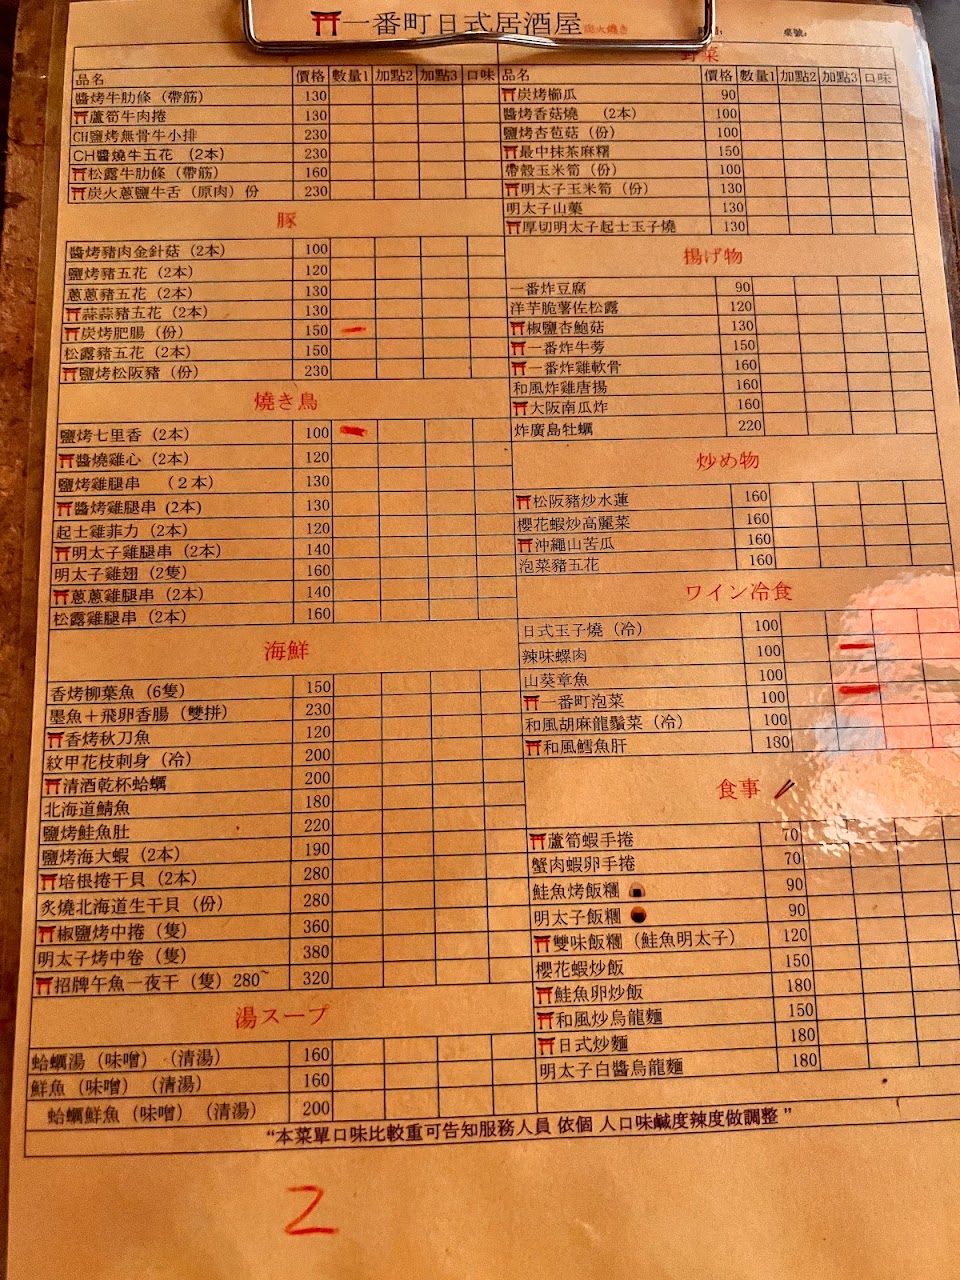 ⛩一番町日式居酒屋炭火燒き
桌號:
野菜
品名 價格 數量1 加點2 加點3 口味
醬烤牛肋條（帶筋） 130
⛩蘆筍牛肉捲 130
CH鹽烤無骨牛小排 230
CH醬燒牛五花 （2本） 230
⛩松露牛肋條（帶筋） 160
⛩炭火蔥鹽牛舌（原肉）份 230
豚
醬烤豬肉金針菇（2本） 100
鹽烤豬五花（2本） 120
蔥蔥豬五花（2本） 130
⛩蒜蒜豬五花（2本） 130
⛩炭烤肥腸（份） 150
松露豬五花（2本） 150
⛩鹽烤松阪豬（份） 230
燒き鳥
鹽烤七里香（2本） 100
⛩醬燒雞心（2本） 120
鹽烤雞腿串 （2本） 130
⛩醬烤雞腿串（2本） 130
起士雞菲力（2本） 120
⛩明太子雞腿串（2本） 140
明太子雞翅（2隻） 160
⛩蔥蔥雞腿串（2本） 140
松露雞腿串（2本） 160
海鮮
香烤柳葉魚（6隻） 150
墨魚＋飛卵香腸（雙拼） 230
⛩香烤秋刀魚 120
紋甲花枝刺身（冷） 200
⛩清酒乾杯蛤蠣 200
北海道鯖魚 180
鹽烤鮭魚肚 220
鹽烤海大蝦（2本） 190
⛩培根捲干貝（2本） 280
炙燒北海道生干貝（份） 280
⛩椒鹽烤中捲（隻） 360
明太子烤中卷（隻） 380
⛩招牌午魚一夜干（隻）280~ 320
湯スープ
蛤蠣湯（味噌）（清湯） 160
鮮魚（味噌）（清湯） 160
蛤蠣鮮魚（味噌）（清湯） 200
品名 價格 數量1 加點2 加點3 口味
⛩炭烤櫛瓜 90
醬烤香菇燒 （2本） 100
鹽烤杏苞菇（份） 100
⛩最中抹茶麻糬 150
帶殼玉米筍（份） 100
⛩明太子玉米筍（份） 130
明太子山藥 130
⛩厚切明太子起士玉子燒 130
揚げ物
一番炸豆腐 90
洋芋脆薯佐松露 120
⛩椒鹽杏鮑菇 130
⛩一番炸牛蒡 150
⛩一番炸雞軟骨 160
和風炸雞唐揚 160
⛩大阪南瓜炸 160
炸廣島牡蠣 220
炒め物
⛩松阪豬炒水蓮 160
櫻花蝦炒高麗菜 160
⛩沖繩山苦瓜 160
泡菜豬五花 160
ワイン冷食
日式玉子燒（冷） 100
辣味螺肉 100
山葵章魚 100
⛩一番町泡菜 100
和風胡麻龍鬚菜（冷） 100
⛩和風鱈魚肝 180
食事
⛩蘆筍蝦手捲 70
蟹肉蝦卵手捲 70
鮭魚烤飯糰 90
明太子飯糰 90
⛩雙味飯糰（鮭魚明太子） 120
櫻花蝦炒飯 150
⛩鮭魚卵炒飯 180
⛩和風炒烏龍麵 150
⛩日式炒麵 180
明太子白醬烏龍麵 180
“本菜單口味比較重可告知服務人員 依個 人口味鹹度辣度做調整 ”
2